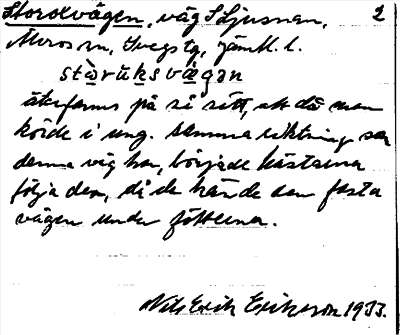 Storoxvägen, väg S Ljusnan, 2
Moros vn, Svegs tg, Jämtl. l.
stòrùksvæ̀gən
återfanns på så sätt, att då man
körde i ung. samma riktning som
denna väg har, började hästarna
följa den, då de kände den fasta
vägen under fötterna.
Nils Erik Erikson 1933.